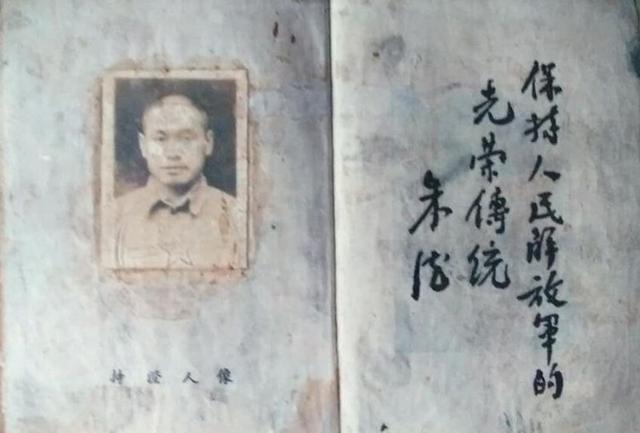 保持人民解放軍的
光荣傳统
朱德
像人證持